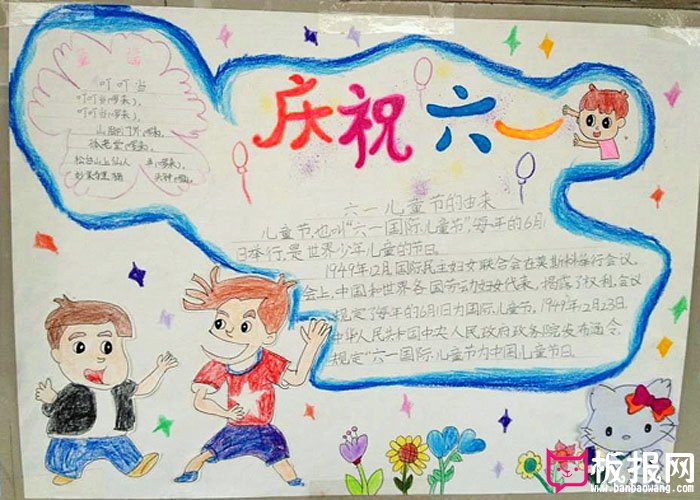 童谣
叮叮当
叮叮当(啰来),
叮叮当(啰来),
山脚门外(啰来),
松台山上仙人
庆祝六一
六一儿童节的由来
儿童节,也叫“六一国际儿童节”,每年的6月1
日举行,是世界少年儿童的节日。
1949年12月国际民主妇女联合会在莫斯科举行会议。
会上,中国和世界各国劳动妇女代表,揭露了权利,会议
规定了每年的6月1日为国际儿童节。1949年12月23日,
中华人民共和国中央人民政府政务院发布通令,
规定“六一国际儿童节”为中国儿童节日。
板报网
www.banbaowang.com